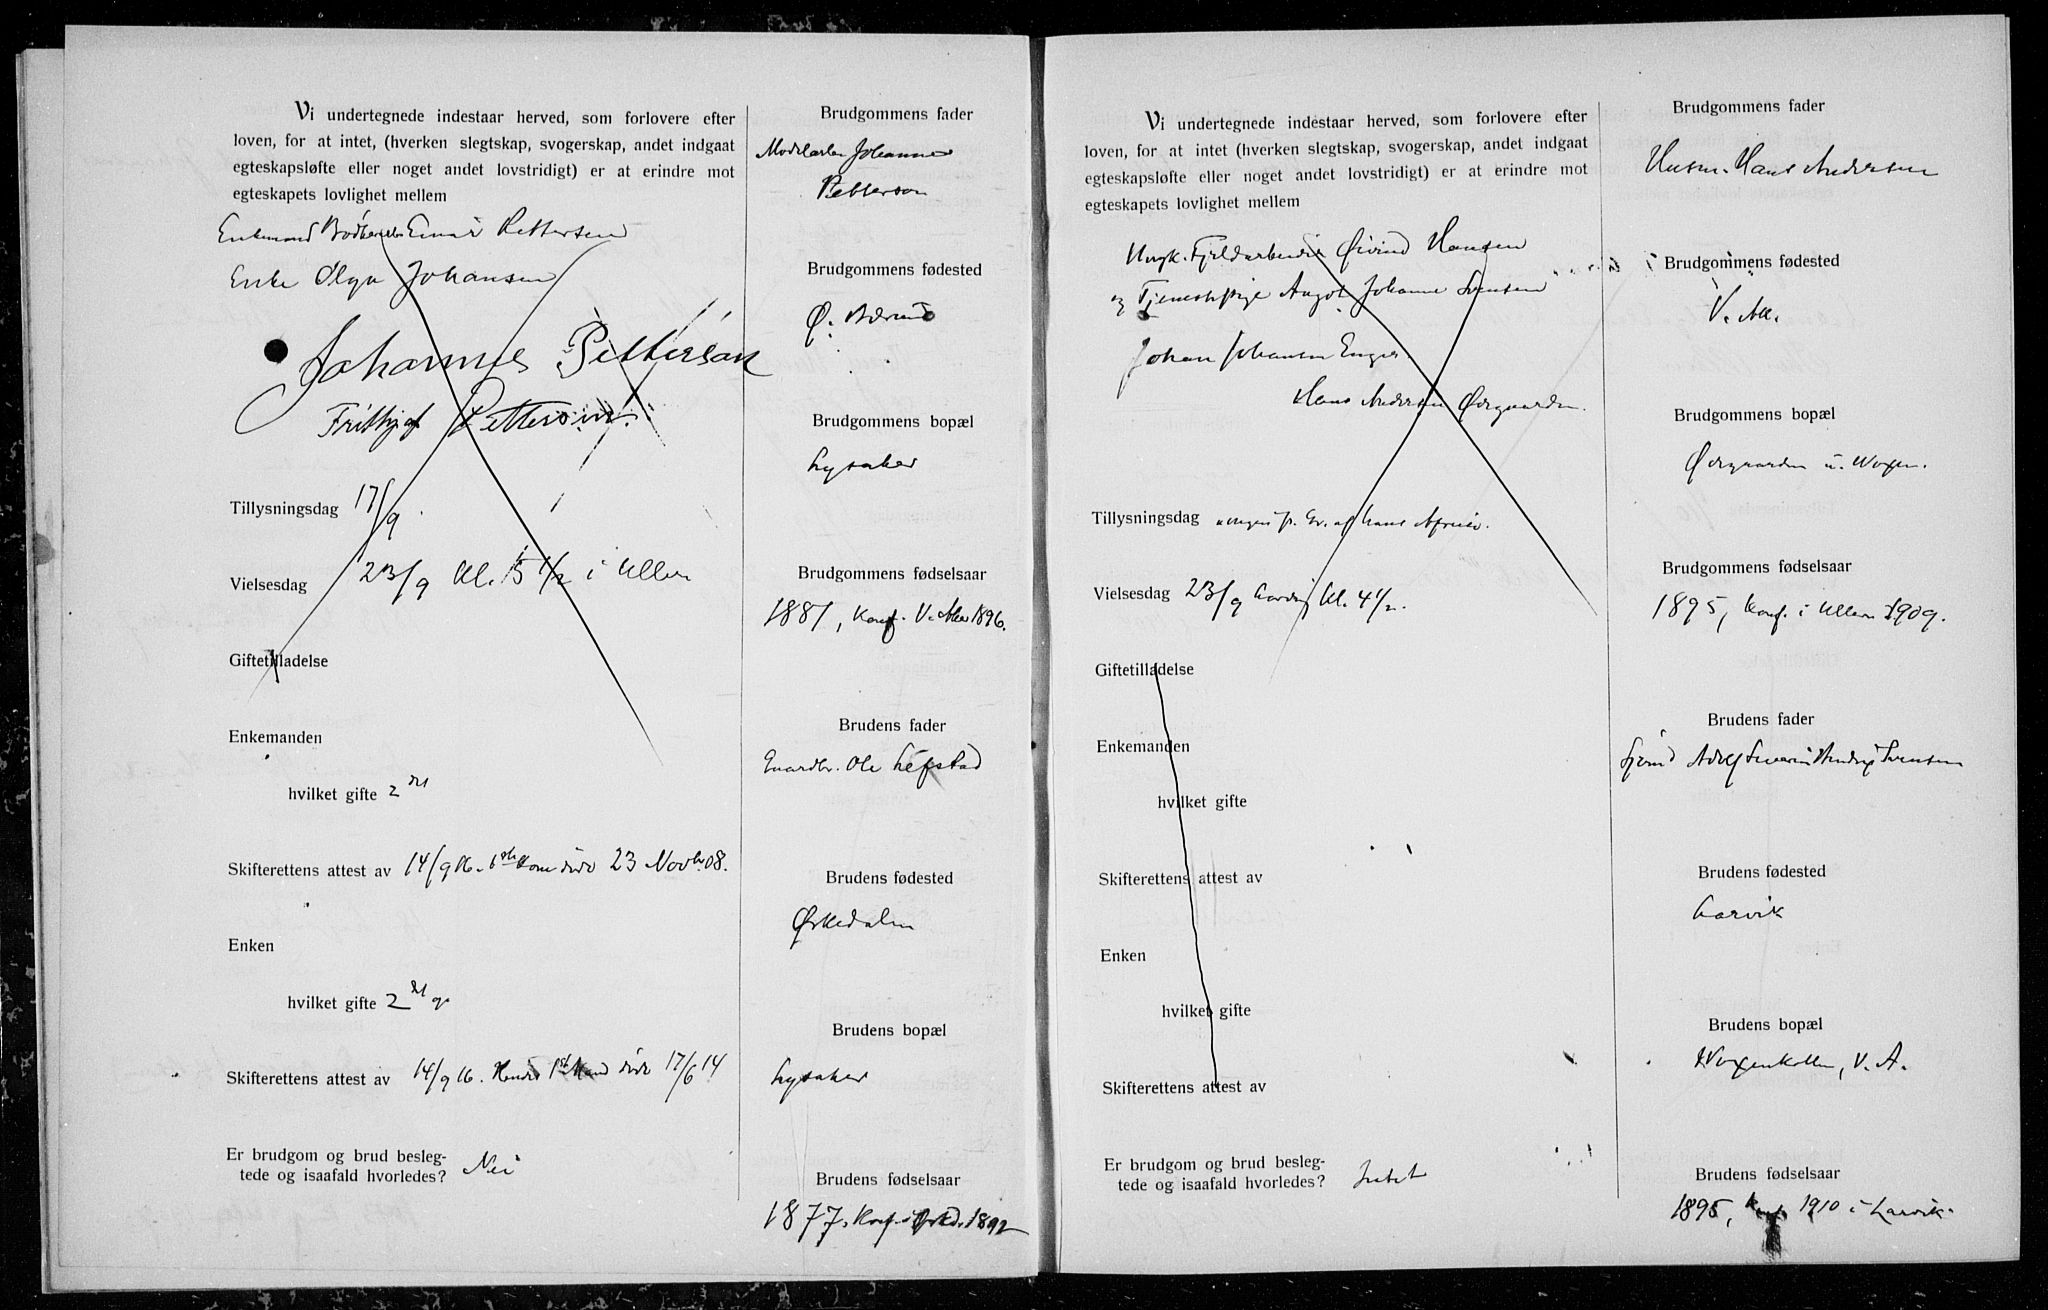 Vi undertegnede indestaar herved, som forlovere efter
loven, for at intet, (hverken slegtskap, svogerskap, andet indgaat
egteskapsløfte eller noget andet lovstridigt) er at erindre mot
egteskapets lovlighet mellem
Enkemand Einar Pettersen
Enke Olga Johansen
Johannes Petterson
Frithjof Petterson
Tillysningsdag 17/9.
Vielsesdag 23/9 kl. 5 1/2 i Ullern
Giftetilladelse
Enkemanden
hvilket gifte 2det
Skifterettens attest av 14/9 16. 1ste Kone døde 23 Novbr. 08.
Enken
hvilket gifte 2det g.
Skifterettens attest av 14/9 16. Hendes 1ste Mand døde 17/6 14
Er brudgom og brud besleg-
tede og isaafald hvorledes? Nei
Brudgommens fader
Johannes
Petterson
Brudgommens fødested
Ø. Bærum
Brudgommens bopæl
Lysaker
Brudgommens fødselsaar
1881, Konf. V. Aker 1896.
Brudens fader
Gaardbr. Ole Lefstad
Brudens fødested
Ørkedalen
Brudens bopæl
Lysaker
Brudens fødselsaar
1877. Konf. i Ørkd. 1892
Vi undertegnede indestaar herved, som forlovere efter
loven, for at intet (hverken slegtskap, svogerskap, andet indgaat
egteskapsløfte eller noget andet lovstridigt) er at erindre mot
egteskapets lovlighet mellem
Ungk. Fjeldarbeider Øivind Hansen
og Tjenestepige Aagot Johanne Svensen
Johan Johansen Enger.
Hans Andersen Øvrgaarden.
Tillysningsdag
Vielsesdag 23/9 Lørdag kl. 4 1/2.
Giftetilladelse
Enkemanden
hvilket gifte
Skifterettens attest av
Enken
hvilket gifte
Skifterettens attest av
Er brudgom og brud besleg-
tede og isaafald hvorledes? Intet
Brudgommens fader
Husm. Hans Andersen
Brudgommens fødested
V. Ak.
Brudgommens bopæl
Øvrgaarden u. Voxen.
Brudgommens fødselsaar
1895, Konf. i Ullern 1909.
Brudens fader
Adolf Severin Svensen
Brudens fødested
Larvik
Brudens bopæl
Voxenkollen, V. A.
Brudens fødselsaar
1895, Konf. 1910 i Larvik.